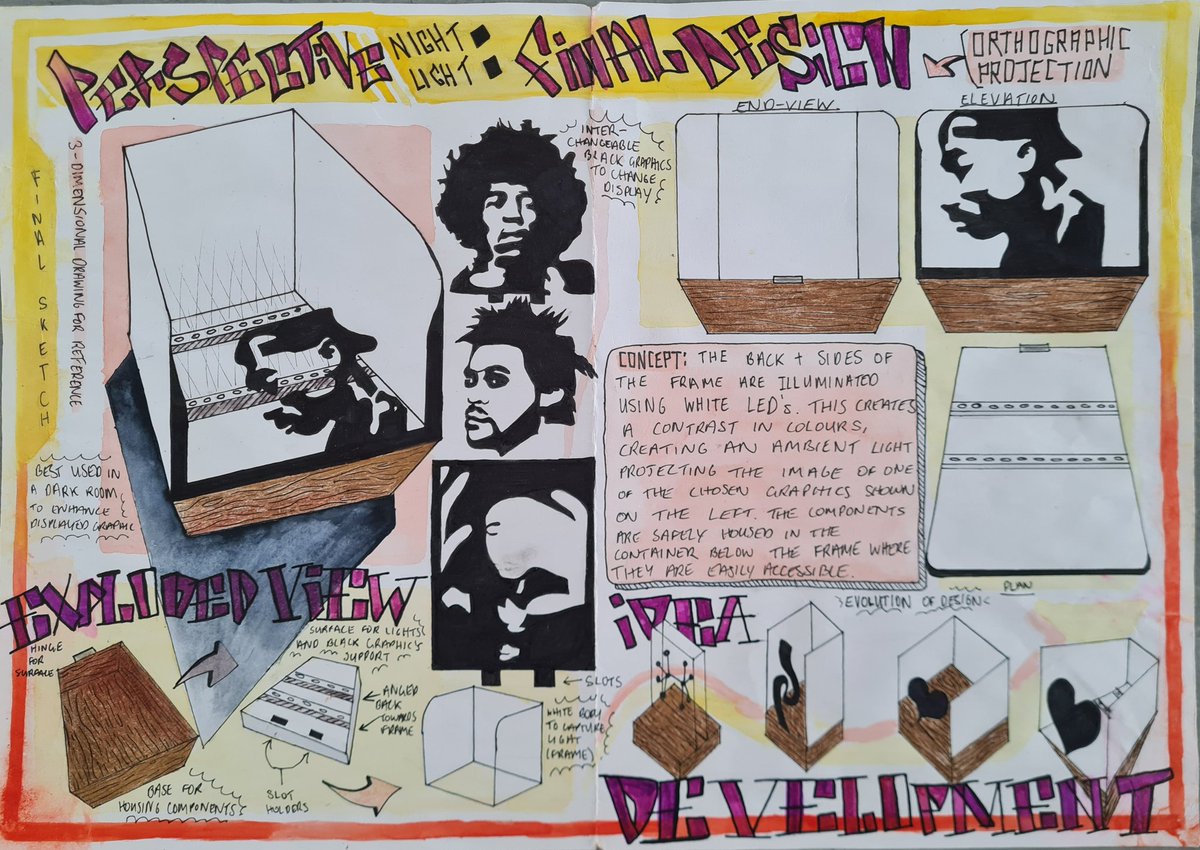 PERSPECTIVE NIGHT LIGHT : FINAL DESIGN
ORTHOGRAPHIC
PROJECTION
FINAL SKETCH
3-DIMENSIONAL DRAWING FOR REFERENCE
INTER-
CHANGEABLE
BLACK GRAPHICS
TO CHANGE
DISPLAY
END-VIEW
ELEVATION
CONCEPT: THE BACK + SIDES OF
THE FRAME ARE ILLUMINATED
USING WHITE LED's. THIS CREATES
A CONTRAST IN COLOURS,
CREATING AN AMBIENT LIGHT
PROJECTING THE IMAGE OF ONE
OF THE CHOSEN GRAPHICS SHOWN
ON THE LEFT. THE COMPONENTS
ARE SAFELY HOUSED IN THE
CONTAINER BELOW THE FRAME WHERE
THEY ARE EASILY ACCESSIBLE.
PLAN
BEST USED IN
A DARK ROOM
TO ENHANCE
DISPLAYED GRAPHIC
EXPLODED VIEW
HINGE
FOR
SURFACE
SURFACE FOR LIGHTS
AND BLACK GRAPHICS
SUPPORT
ANGED
BACK
TOWARDS
FRAME
SLOT
HOLDERS
BASE FOR
HOUSING COMPONENTS
SLOTS
WHITE BODY
TO CAPTURE
LIGHT
(FRAME)
IDEA
EVOLUTION OF DESIGN
DEVELOPMENT